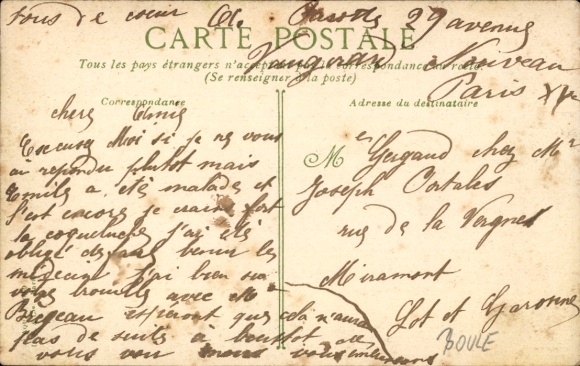 vous de coeur A. Passot 29 avenue
CARTE POSTALE
Vaugirard Nouveau
Tous les pays étrangers n'acceptent la correspondance au recto
(Se renseigner à la poste)
Paris XVe
Correspondance
cher Amie
Escusez Moi si je ne vous
ai repondu plutot mais
Emile a eté malade et
s'est encore je crains fort
la coqueluche j'ai été
obligé de faire venir le
médecin j'ai bien
votre brouille avec Mr
esperont que cela n'aura
pas de suite à bientot
vous
Adresse du destinataire
Me Geigaud chez Mr
Joseph Cortales
rue de la Vergnes
Miramont
Lot et Garonne
BOULE